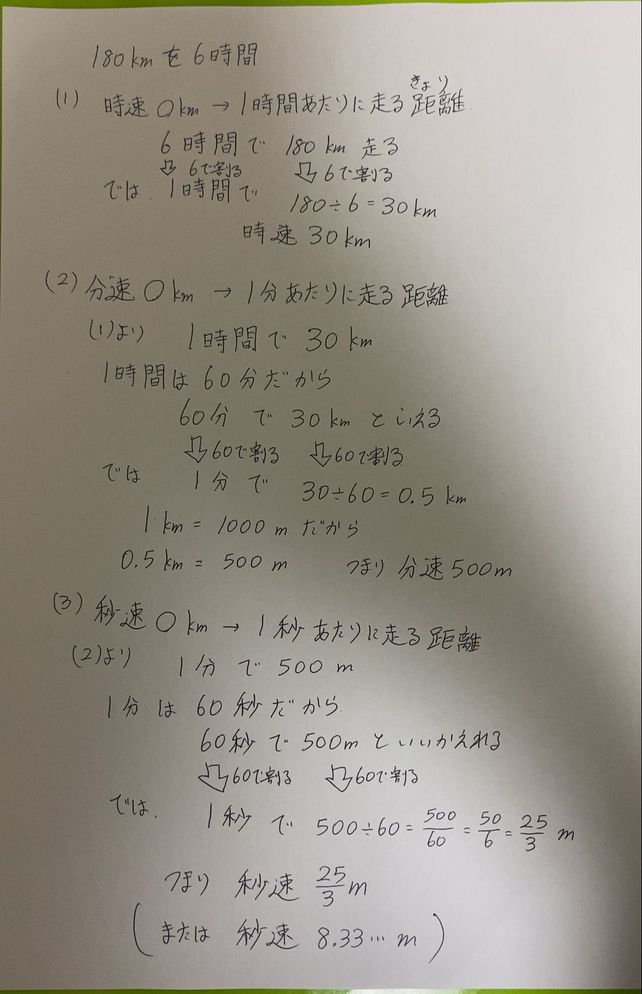 180kmを6時間
(1) 時速〇km → 1時間あたりに走る距離
きょり
6時間で 180km 走る
⇩6で割る ⇩6で割る
では 1時間で 180÷6=30km
時速30km
(2) 分速〇km → 1分あたりに走る距離
(1)より 1時間で30km
1時間は60分だから
60分で30kmといえる
⇩60で割る ⇩60で割る
では 1分で 30÷60=0.5km
1km=1000mだから
0.5km=500m つまり分速500m
(3) 秒速〇km → 1秒あたりに走る距離
(2)より 1分で500m
1分は60秒だから
60秒で500mといいかえれる
⇩60で割る ⇩60で割る
では. 1秒で 500÷60=500/60=50/6=25/3 m
つまり 秒速 25/3 m
(または 秒速 8.33… m)